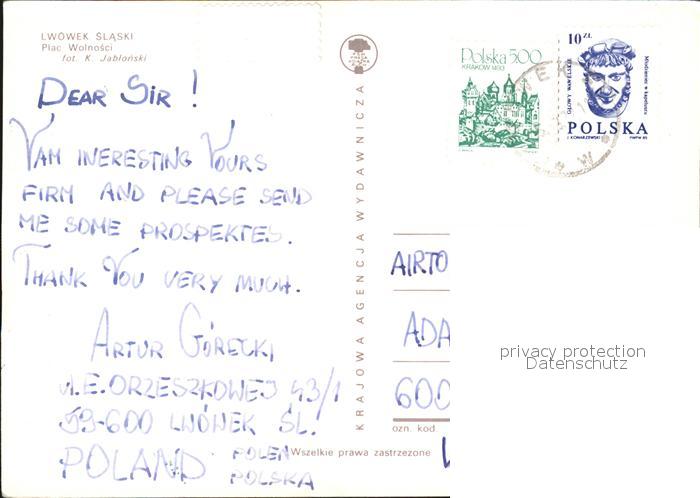 LWÓWEK ŚLĄSKI
Plac Wolności
fot. K. Jabłoński
DEAR SIR !
YAM INERESTING YOURS
FIRM AND PLEASE SEND
ME SOME PROSPEKTES.
THANK YOU VERY MUCH.
ARTUR GÓRECKI
59-600 LWÓWEK ŚL.
POLAND POLEN
POLSKA
KRAJOWA AGENCJA WYDAWNICZA
Wszelkie prawa zastrzeżone
Polska 5.00
KRAKÓW 1493
10 ZŁ
GŁOWY WAWELSKIE
POLSKA
AIRTO
ADA
600
ozn. kod
privacy protection
Datenschutz